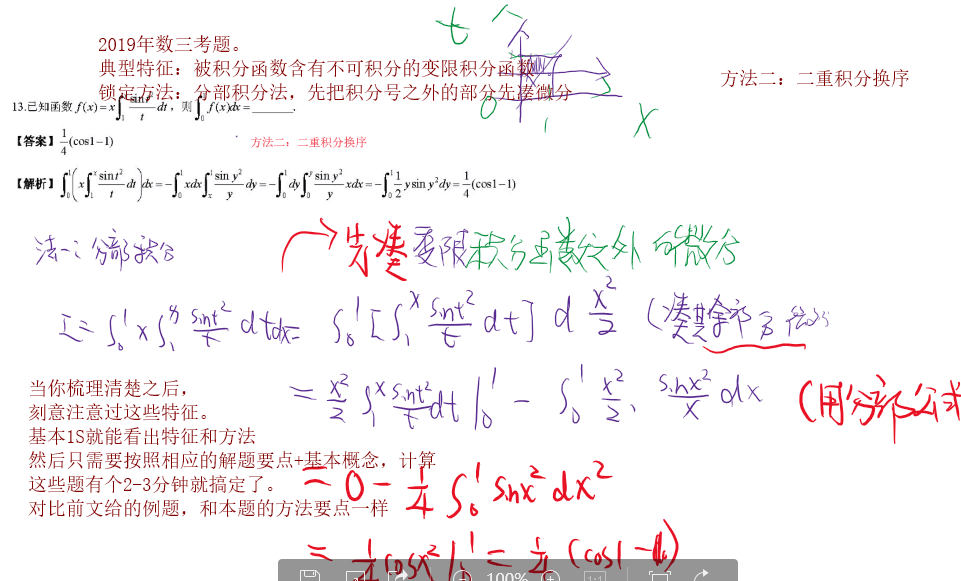 2019年数三考题。
典型特征: 被积分函数含有不可积分的变限积分函数
锁定方法: 分部积分法,先把积分号之外的部分先凑微分
方法二: 二重积分换序
t
0
1
x
13.已知函数 f(x)=x∫₁ˣ sint²/t dt,则∫₀¹ f(x)dx=______.
【答案】1/4(cos1-1)
方法二: 二重积分换序
【解析】∫₀¹(x∫₁ˣ sint²/t dt)dx=-∫₀¹xdx∫ₓ¹ siny²/y dy=-∫₀¹dy∫₀ʸ siny²/y xdx=-∫₀¹ 1/2 ysiny²dy=1/4(cos1-1)
法一: 分部积分
先凑变限积分函数之外的微分
I=∫₀¹x∫₁ˣ sint²/t dtdx=∫₀¹[∫₁ˣ sint²/t dt]d x²/2
=x²/2 ∫₁ˣ sint²/t dt|₀¹-∫₀¹ x²/2·sinx²/x dx (用分部公式
当你梳理清楚之后,
刻意注意过这些特征。
基本1S就能看出特征和方法
然后只需要按照相应的解题要点+基本概念,计算
这些题有个2-3分钟就搞定了。
对比前文给的例题,和本题的方法要点一样
=0-1/4∫₀¹sinx²dx²
=1/4cosx²|₀¹=1/4(cos1-1)
100%
1:1